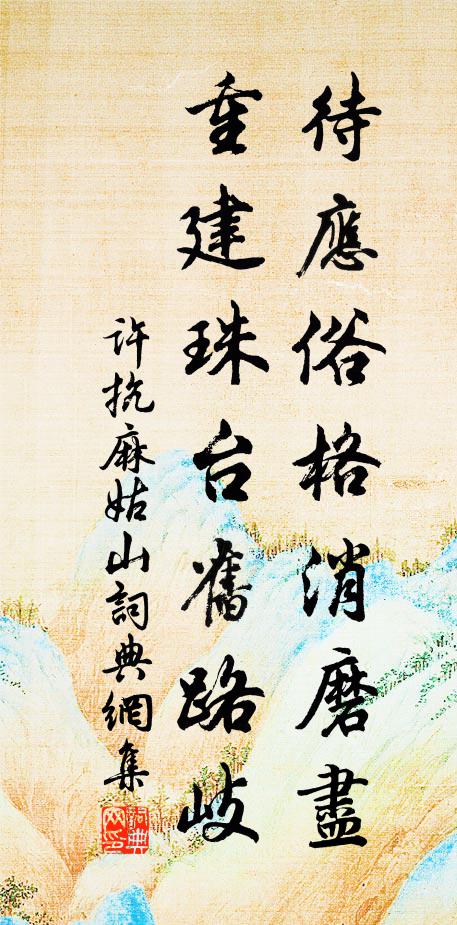 待應俗格消磨盡
重建珠台舊路岐
許抗麻姑山詞典網集
詞典
网印